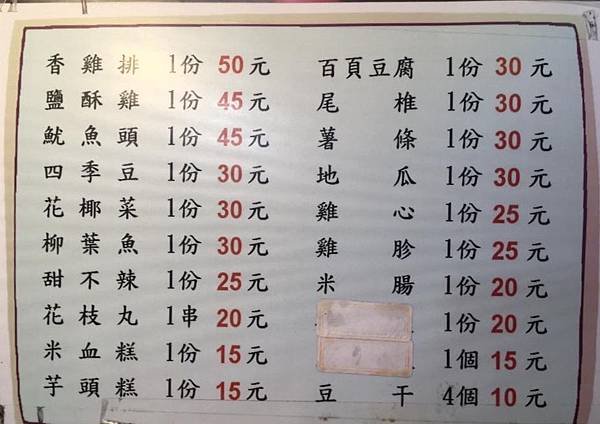 香雞排 1份 50元
鹽酥雞 1份 45元
魷魚頭 1份 45元
四季豆 1份 30元
花椰菜 1份 30元
柳葉魚 1份 30元
甜不辣 1份 25元
花枝丸 1串 20元
米血糕 1份 15元
芋頭糕 1份 15元
百頁豆腐 1份 30元
尾椎 1份 30元
薯條 1份 30元
地瓜 1份 30元
雞心 1份 25元
雞胗 1份 25元
米腸 1份 20元
1份 20元
1個 15元
豆干 4個 10元